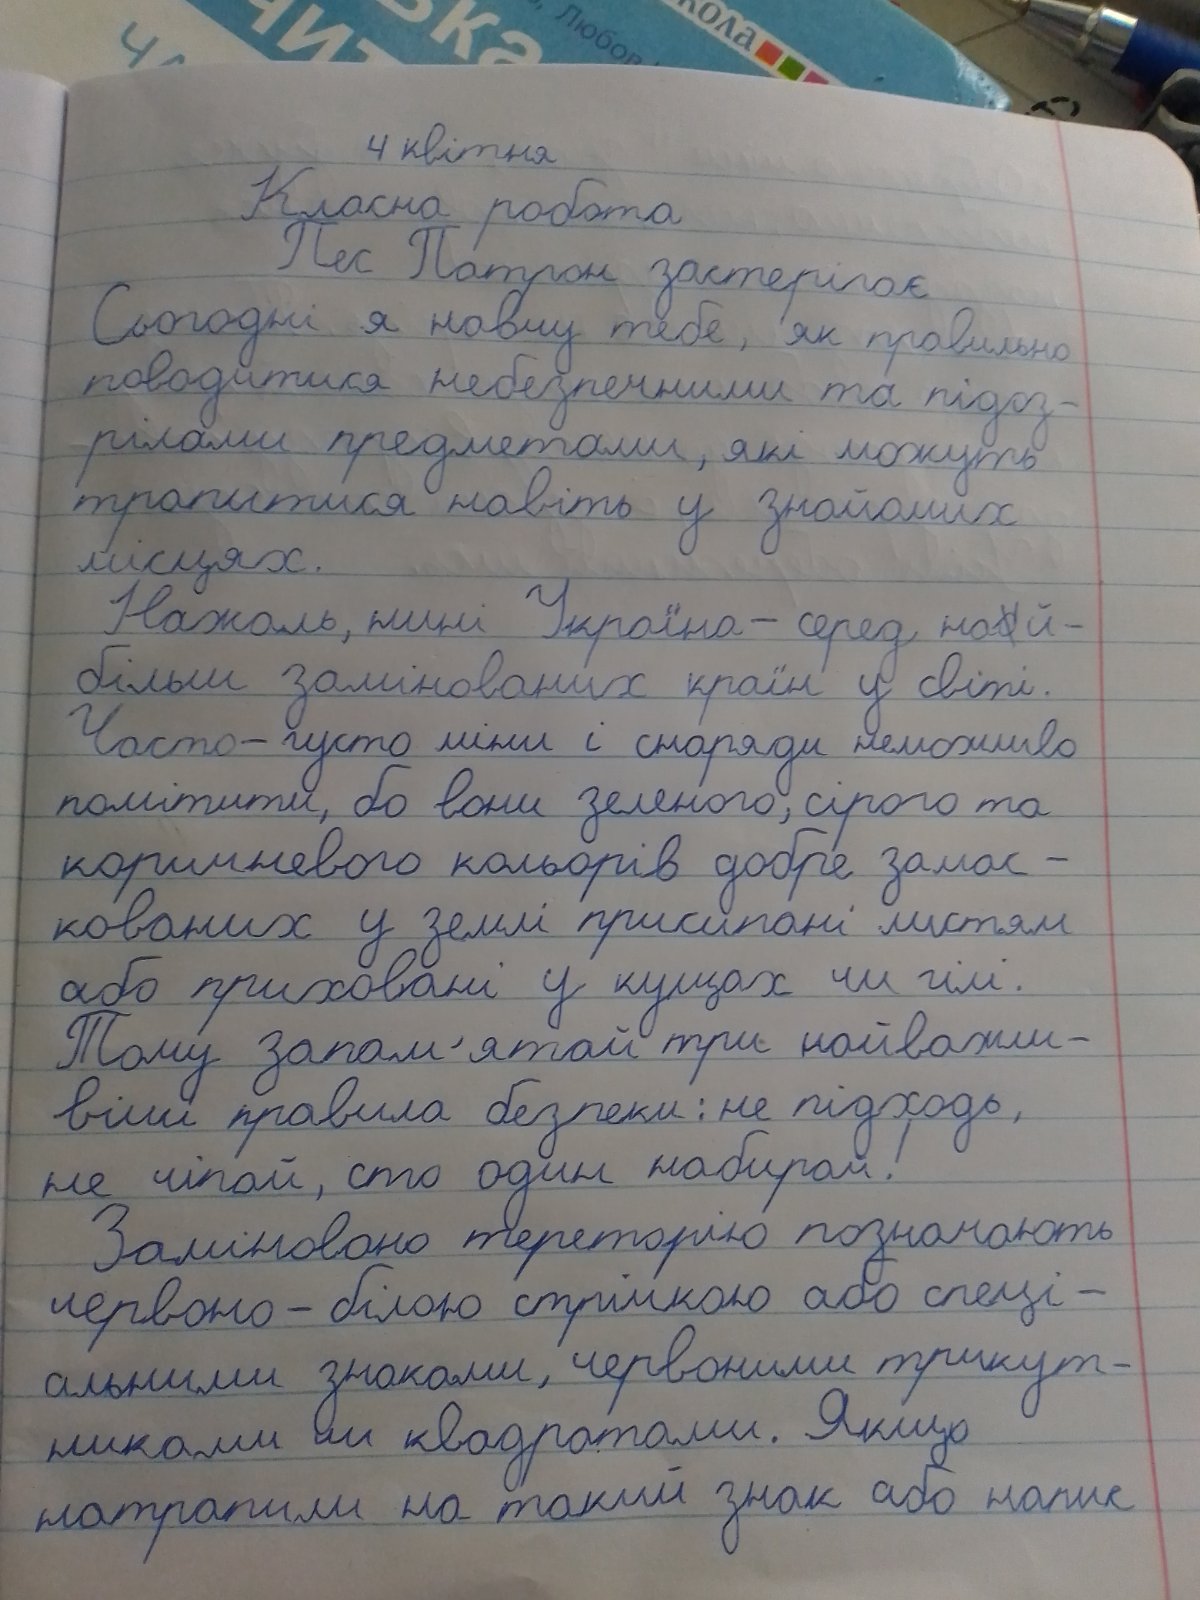 кола
ька
, Любов
чит
ча
4 квітня
Класна робота
Пес Патрон застерігає
Сьогодні я навчу тебе, як правильно
поводитися небезпечними та підоз-
рілами предметами, які можуть
трапитися навіть у знайомих
місцях.
Нажаль, нині Україна - серед най-
більш замінованих країн у світі.
Часто-густо міни і снаряди неможливо
помітити, бо вони зеленого, сірого та
коричневого кольорів добре замас-
кованих у землі присипані листям
або приховані у кущах чи гілі.
Тому запам'ятай три найважли-
віші правила безпеки: не підходь,
не чіпай, сто один набирай!
Заміновано тереторію позначають
червоно-білою стрічкою або спеці-
альними знаками, червоними трикут-
никами чи квадратами. Якщо
натрапили на такий знак або напис